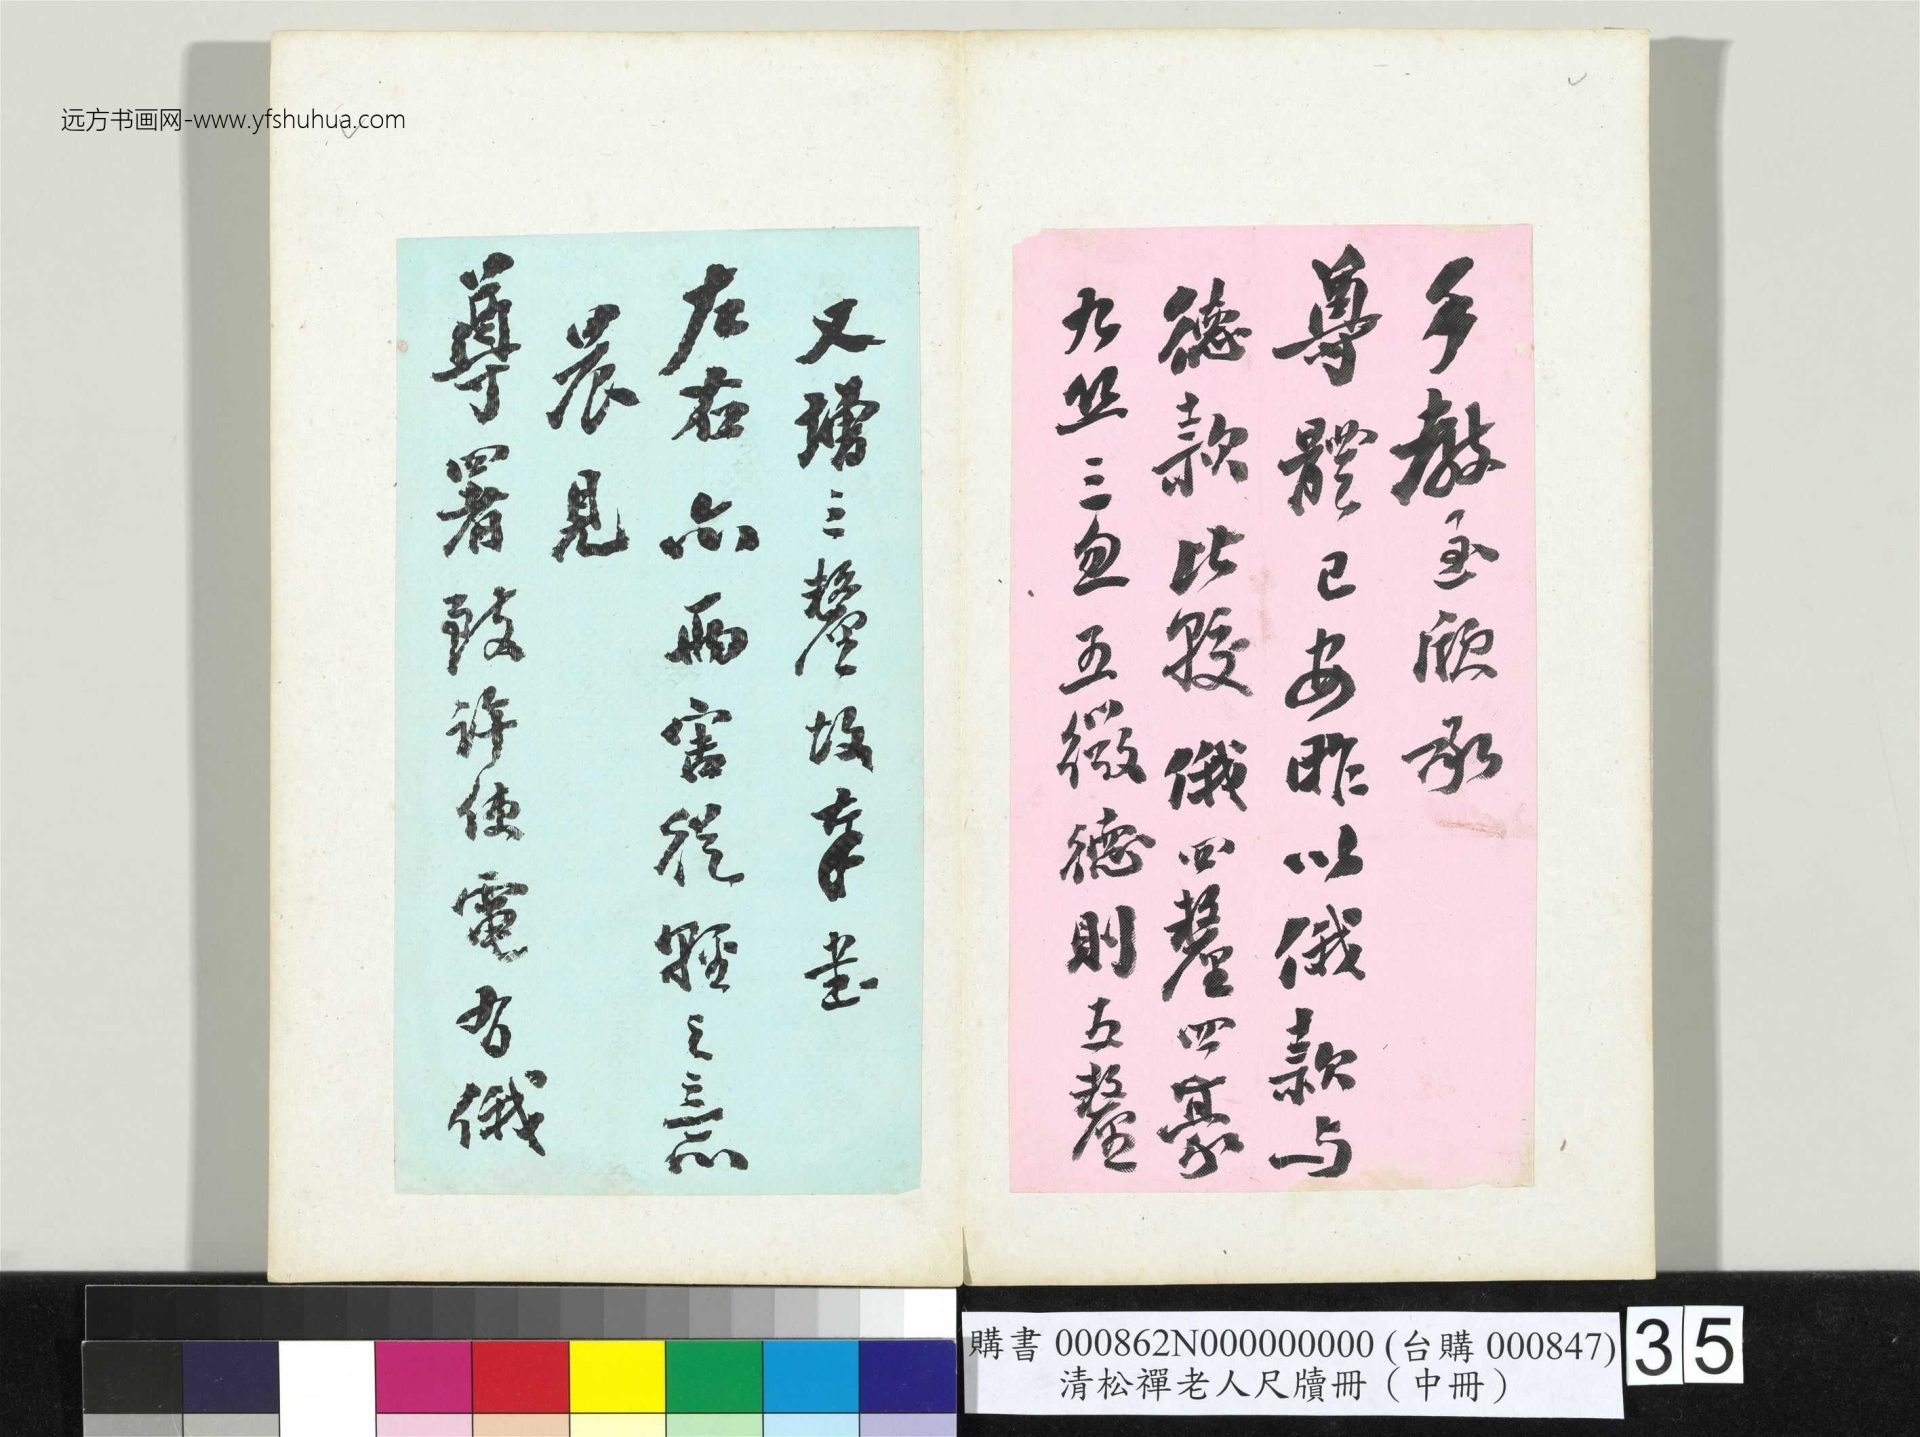 远方书画网-www.yfshuhua.com
手教至欣承
尊體已安昨以俄款与
德款比較俄四釐四豪
九丝三忽五微德則五釐
又增三釐故奉書
左右亦兩害從輕之意
晨見
尊署致許使電有俄
購書 000862N000000000 (台購 000847)
清松禪老人尺牘冊（中冊）
35